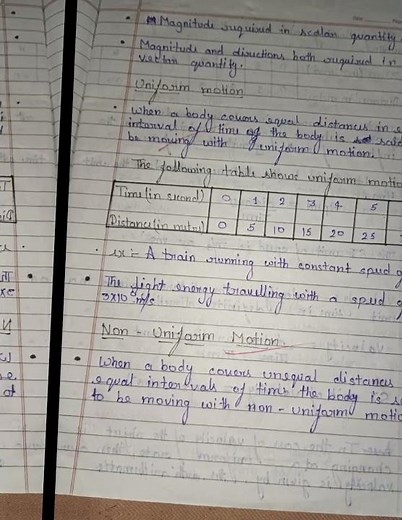 Magnitude required in scalar quantity
Magnitude and directions both required in
vector quantity.
Uniform motion
When a body covers equal distances in e
interval of time the body is said
be moving with uniform motion.
The following table shows uniform motio
Time(in second) 0 1 2 3 4 5
Distance(in metre) 0 5 10 15 20 25
ex = A train running with constant speed o
The light energy travelling with a speed o
3x10⁸ m/s
Non - Uniform Motion
When a body covers unequal distances
equal intervals of time the body is s
to be moving with non - uniform motio